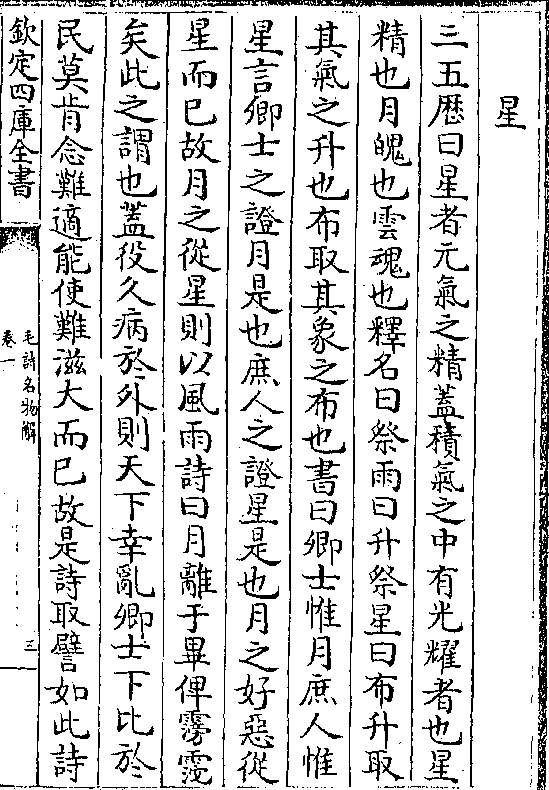 星
三五歴曰星者元氣之精蓋積氣之中有光耀者也星
精也月魄也雲魂也釋名曰祭雨曰升祭星曰布升取
其氣之升也布取其象之布也書曰卿士惟月庶人惟
星言卿士之證月是也庶人之證星是也月之好惡從
星而已故月之從星則以風雨詩曰月離于畢俾霶霑
矣此之謂也蓋役久病於外則天下幸亂卿士下比於
民莫肯念難適能使難滋大而已故是詩取譬如此詩
欽定四庫全書
毛詩名物解
卷一
三